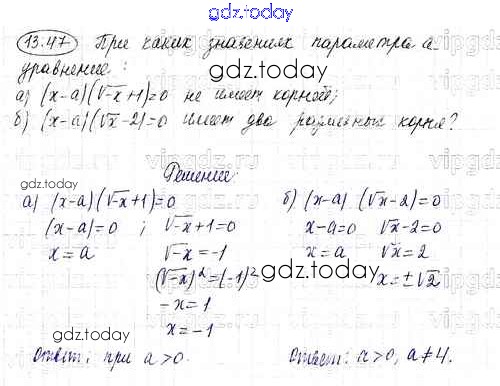 gdz.today
13.47 При каких значениях параметра а
уравнение:
gdz.today
а) (x-a)(√-x+1)=0 не имеет корней;
б) (x-a)(√x-2)=0 имеет два различных корня?
gdz.today
Решение:
gdz.today
а) (x-a)(√-x+1)=0 б) (x-a) (√x-2)=0
(x-a)=0 ; √-x+1=0 x-a=0 √x-2=0
x=a √-x=-1 x=a √x=2
(√-x)²=(-1)² gdz.today x=±√2
-x=1
x=-1
gdz.today
Ответ: при a>0. Ответ: a>0, a≠4.